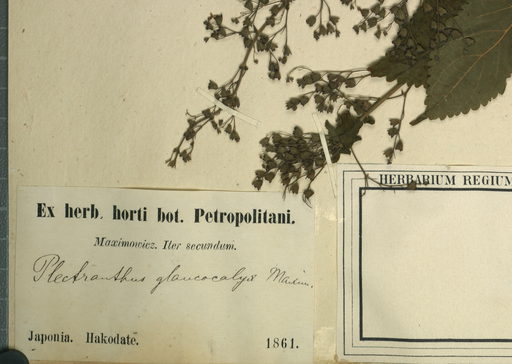 HERBARIUM REGIUM
Ex herb. horti bot. Petropolitani.
Maximowicz. Iter secundum.
Plectranthus glaucocalyx Maxim.
Japonia. Hakodate. 1861.